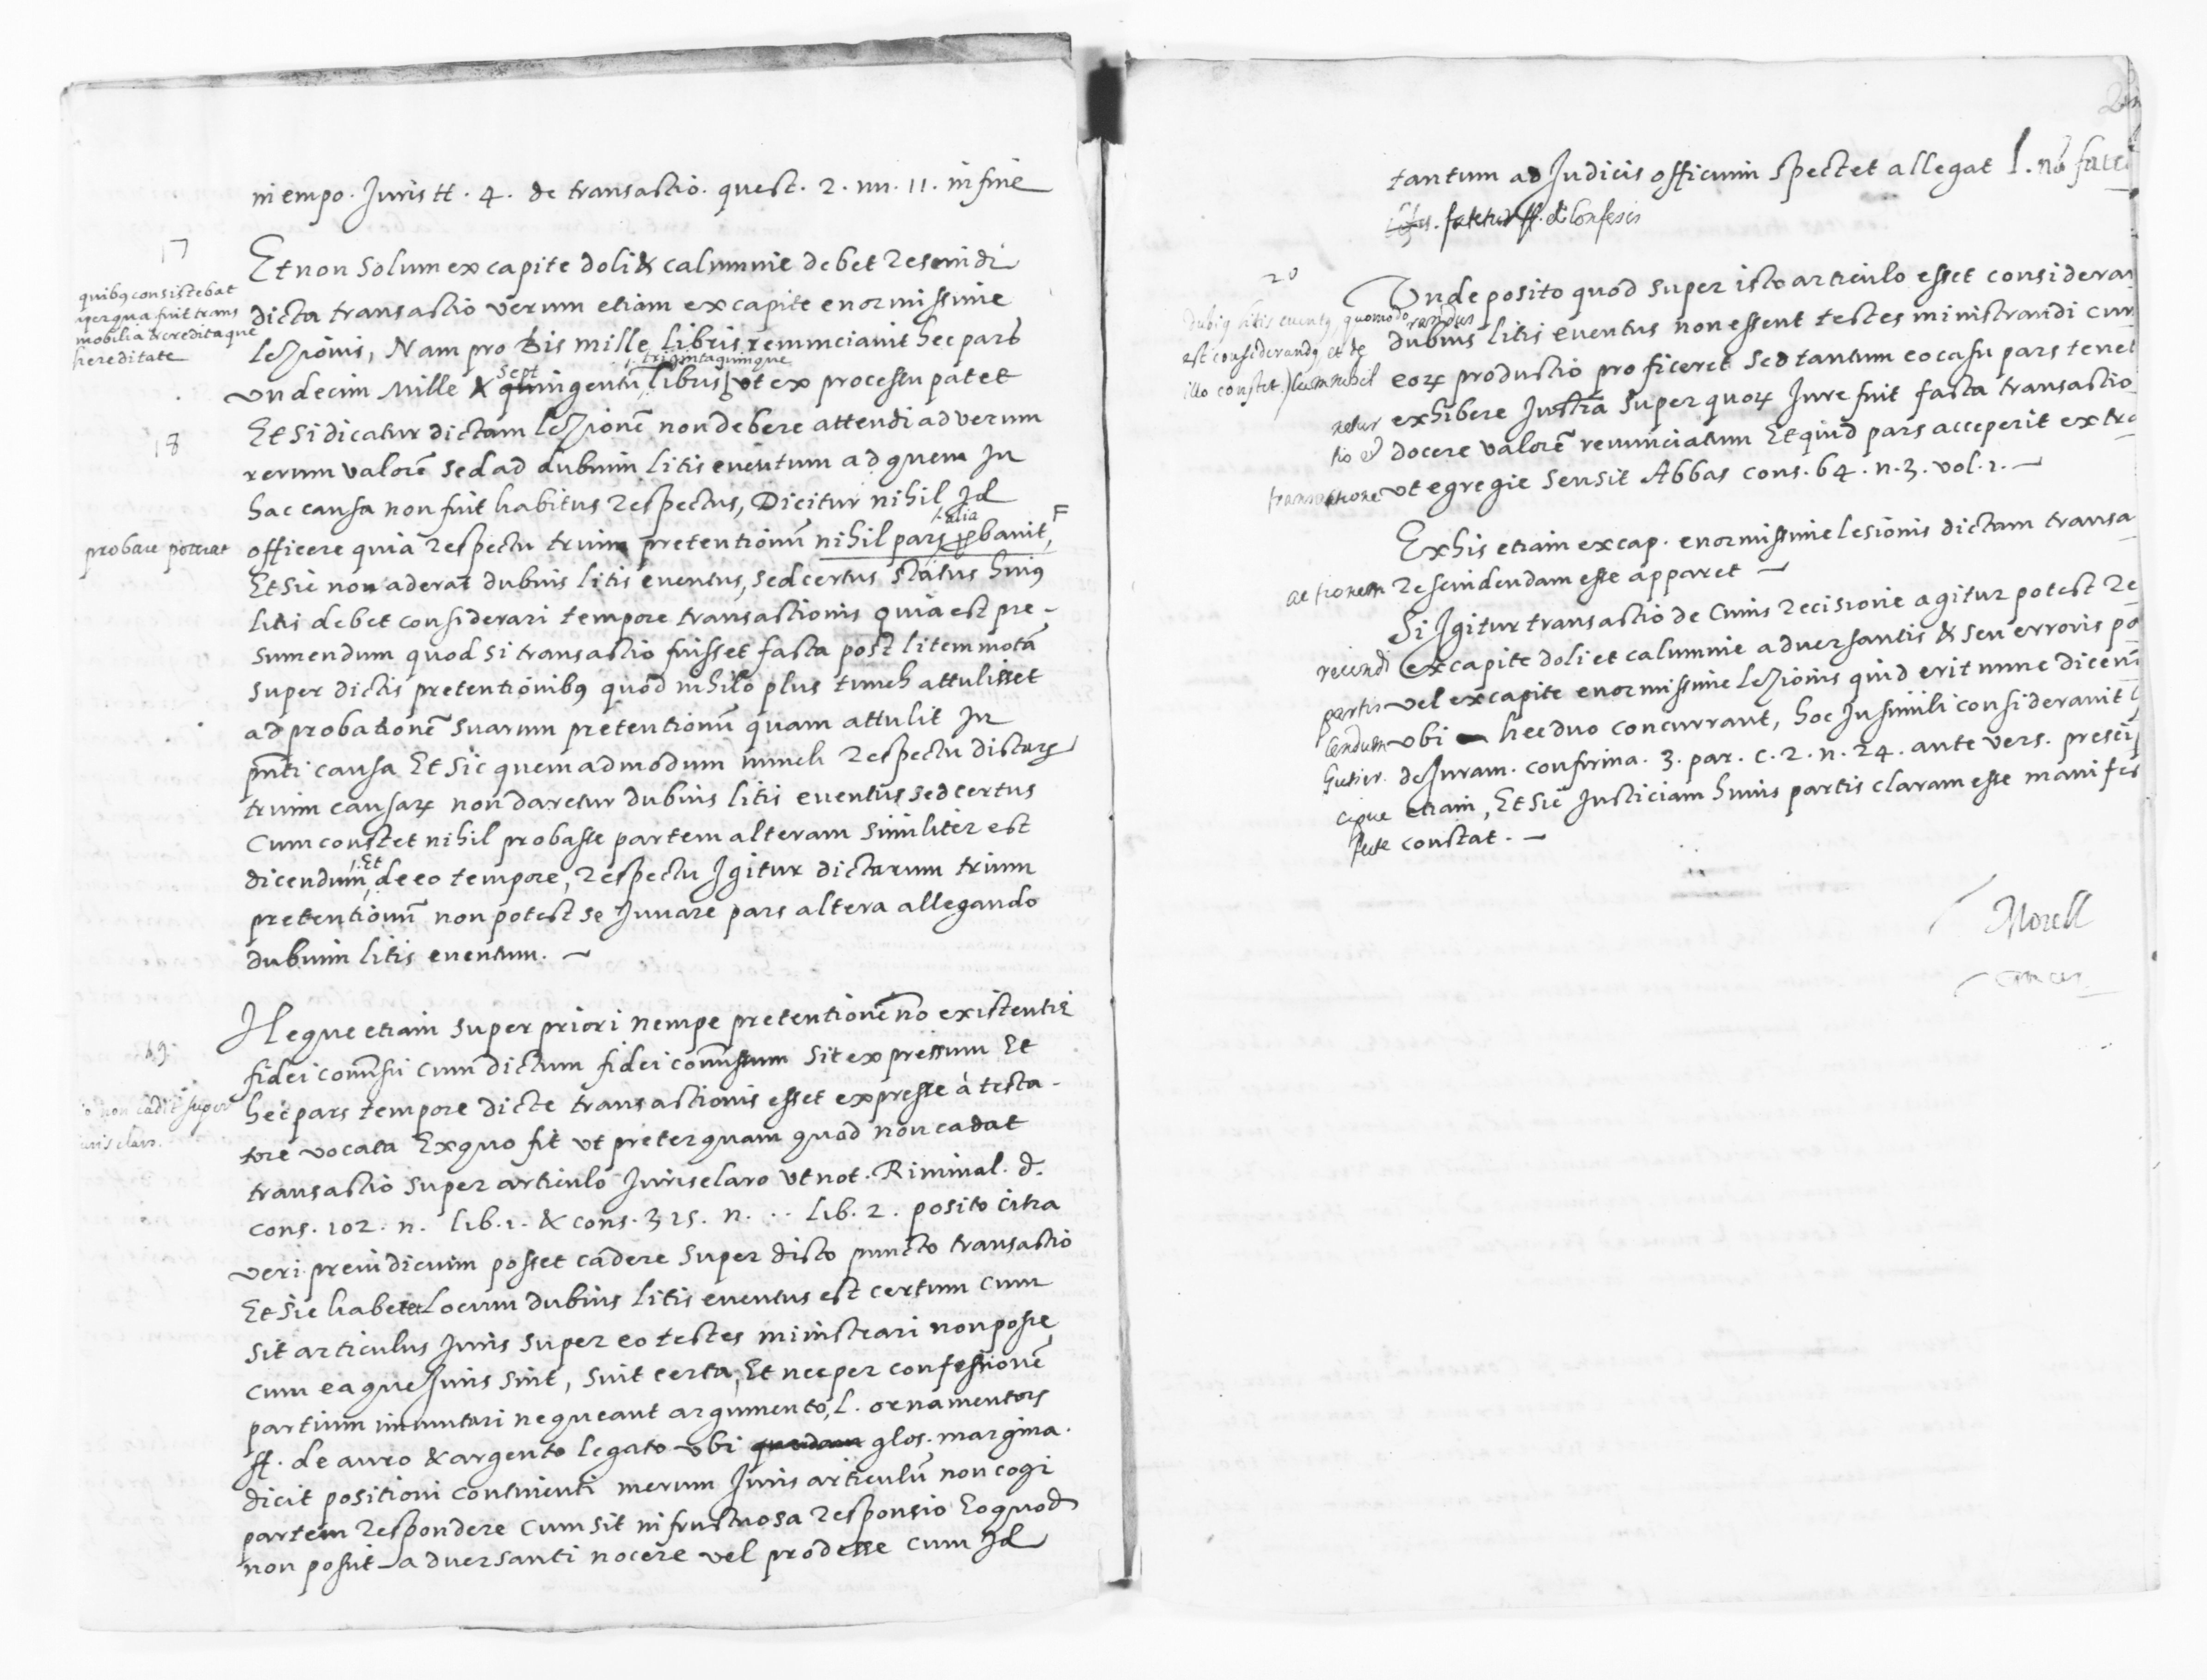 in empo. Juris tt. 4. de transactio. quest. 2. nu. 11. in fine
17
Et non solum ex capite doli & calumnie debet rescindi
quibꝯ consistebat
dicta transactio verum etiam ex capite enormissime
per qua fuit trans
mobilia & credita que
lezionis, Nam pro bis mille libris renunciavit hec pars
hereditate
sept trigintaquinque
undecim mille & quingentũ libris ut ex processu patet
18
Et si dicatur dictam lezionẽ non debere attendi ad verum
rerum valorẽ sed ad dubium litis eventum ad quem In
hac causa non fuit habitus respectus, Dicitur nihil Id
alia F
probare poterat
officere quia respectu trium pretentionũ nihil pars ꝓbavit,
Et sic non aderat dubius litis eventus, sed certus status huiꝯ
litis debet considerari tempore transactionis quia est pre-
sumendum quod si transactio fuisset facta post litem motã
super dictis pretentionibꝯ quod nihilo plus tunch attulisset
ad probationẽ suarum pretentionũ quam attulit In
pñti causa Et sic quemadmodum nunch respectu dictaꝝ
trium causaꝝ non daretur dubius litis eventus sed certus
Cum constet nihil probasse partem alteram similiter est
Et
dicendum de eo tempore, respectu Igitur dictarum trium
pretentionũ non potest se Iuvare pars altera allegando
dubium litis eventum. —
Neque etiam super priori nempe pretentionẽ nõ existentie
19.
fidei comissi cum dictum fidei comissum sit expressum Et
non cadit super
hec pars tempore dicte transactionis esset expresse à testa-
iuris claro.
tore vocata Ex quo fit ut preterquam quod non cadat
transactio super articulo Iuris claro ut not. Riminal. d.
cons. 102. n. lib. 1. & cons. 325. n. .. lib. 2. posito citra
veri preiudicium posset cadere super dicto puncto transactio
Et sic haberet Locum dubius litis eventus est certum cum
sit articulus Iuris super eo testes ministrari non posse
cum ea que Iuris sint, sint certa, Et nec per confessionẽ
partium immutari nequeant argumento, l. ornamentors
ff. de auro & argento legato ubi quendam glos. margina.
dicit positioni continenti merum Iuris articulũ non cogi
partem respondere cum sit infructuosa responsio Eo quod
non possit adversanti nocere vel prodesse cum Id
tantum ad Iudicis officium spectet allegat l. nõ
fatetur ff. de Confesis
20
Unde posito quod super isto articulo esset consideran
dubiꝯ litis eventꝯ, quomodo
randus
est considerandꝯ et de
dubius litis eventus non essent testes ministrandi cum
illo constet. cum nihil
eoꝝ productio proficeret sed tantum eo casu pars tenet
netur exhibere Iustra super quoꝝ Iure fuit facta transactio
tio & docere valorẽ renunciatum Et quid pars acceperit ex tra
transactione ut egregie sensit Abbas cons. 64. n. 3. vol. 1. —
Ex his etiam ex cap. enormissime lesionis dictam transa
actionem rescindendam esse apparet —
Si Igitur transactio de cuius recisione agitur potest re
reiendi ex capite doli et calumnie adversantis & seu erroris po
partis vel ex capite enormissime lezionis quid erit nunc dicen
cendum ubi hec duo concurrant, hoc In simili consideravit
Gutier. de Iuram. confirma. 3. par. c. 2. n. 24. ante vers. preci
cipue etiam, Et sic Iusticiam huius partis claram esse manifes
feste constat. —
Morell